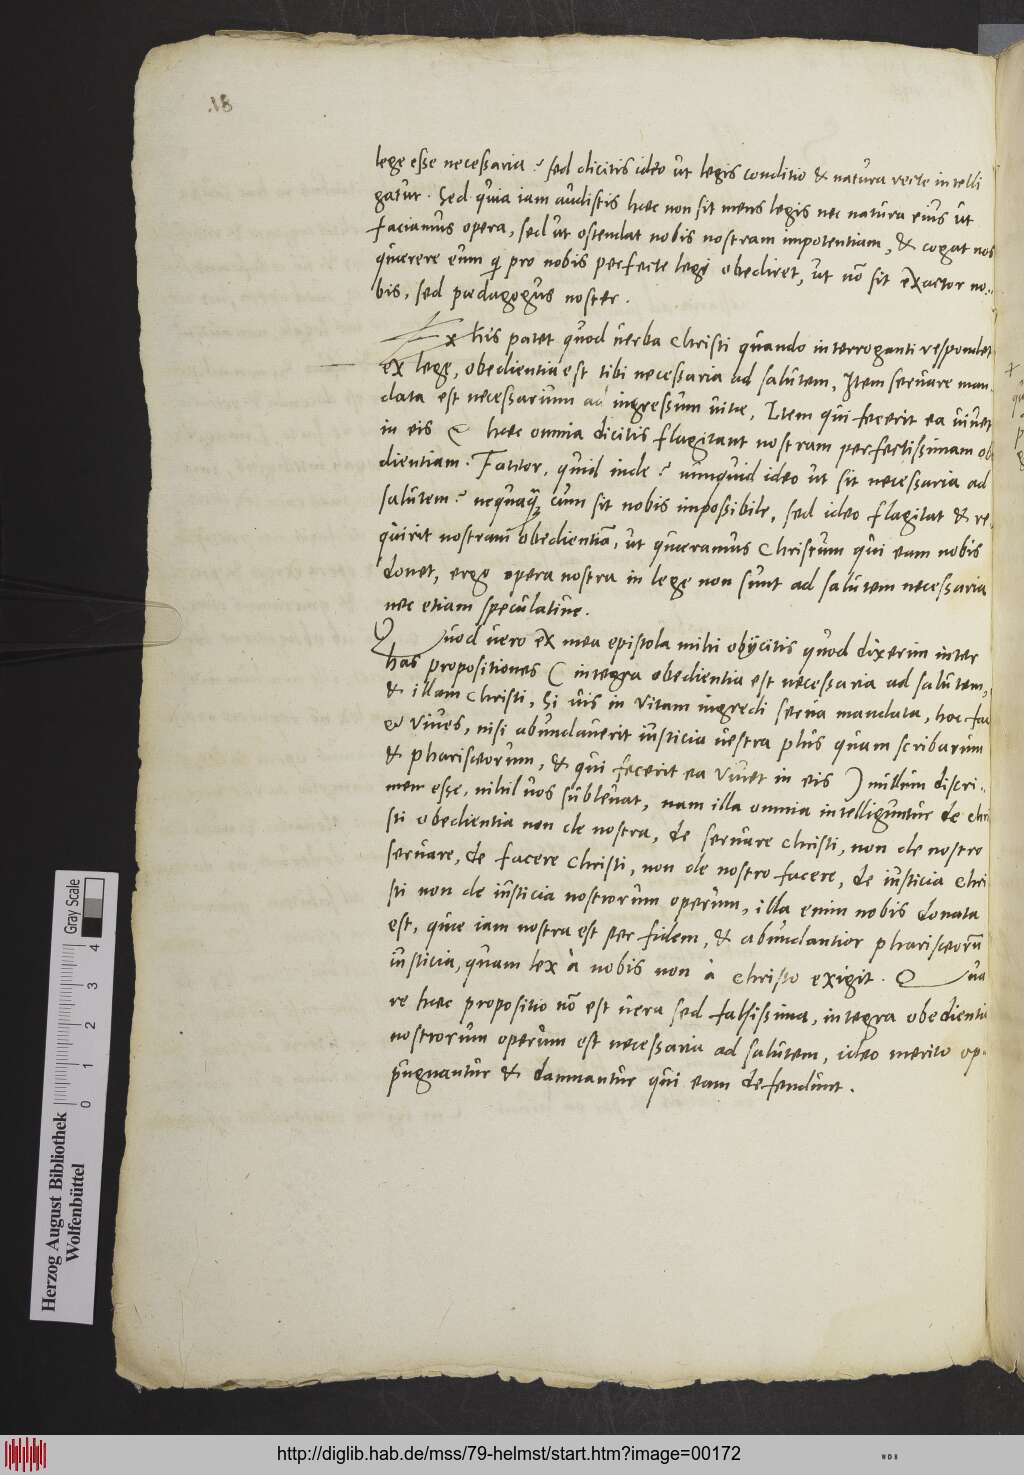 lege esse necessaria? sed dicitis ideo ut legis conditio & natura recte intelli
gatur. Sed quia iam audistis hæc non sit mens legis nec natura eius ut
faciamus opera, sed ut ostendat nobis nostram impotentiam, & cogat nos
quærere eum q̃ pro nobis perfecte legi obediret, ut nõ sit exactor no..
bis, sed pædagogus noster.
Ex his patet quod uerba Christi quando interroganti respondet
ex lege, obedientia est tibi necessaria ad salutem, Item seruare man
data est necessarium ad ingressum uitæ, Item qui fecerit ea uiuet
in eis & hæc omnia dicitis flagitant nostram perfectissimam ob
dientiam. Fateor, quid inde? nunquid ideo ut sit necessaria ad
salutem? nequaq̃ cum sit nobis impossibile, sed ideo flagitat & re
quirit nostram obedientiã, ut quæramus Christum qui eam nobis
donet, ergo opera nostra in lege non sunt ad salutem necessaria
nec etiam speculatiue.
Quod uero ex mea epistola mihi obijcitis quod dixerim inter
has propositiones ( integra obedientia est necessaria ad salutem,
& illam Christi, Si uis in vitam ingredi serua mandata, hoc fac
et viues, nisi abundauerit iusticia uestra plus quam scribarum
& pharisæorum, & qui fecerit ea viuet in eis ) nullum discri..
men esse, nihil uos subleuat, nam illa omnia intelliguntur de chri
sti obedientia non de nostra, de seruare Christi, non de nostro
seruare, de facere Christi, non de nostro facere, de iusticia Chri
sti non de iusticia nostrorum operum, illa enim nobis donata
est, quæ iam nostra est per fidem, & abundantior pharisæorũ
iusticia, quam lex à nobis non à Christo exigit. Qua
re hæc propositio nõ est uera sed falsissima, integra obedientia
nostrorum operum est necessaria ad salutem, ideo merito op.
pugnantur & damnantur qui eam defendunt.
Gray Scale
4
3
2
1
0
Herzog August Bibliothek
Wolfenbüttel
http://diglib.hab.de/mss/79-helmst/start.htm?image=00172